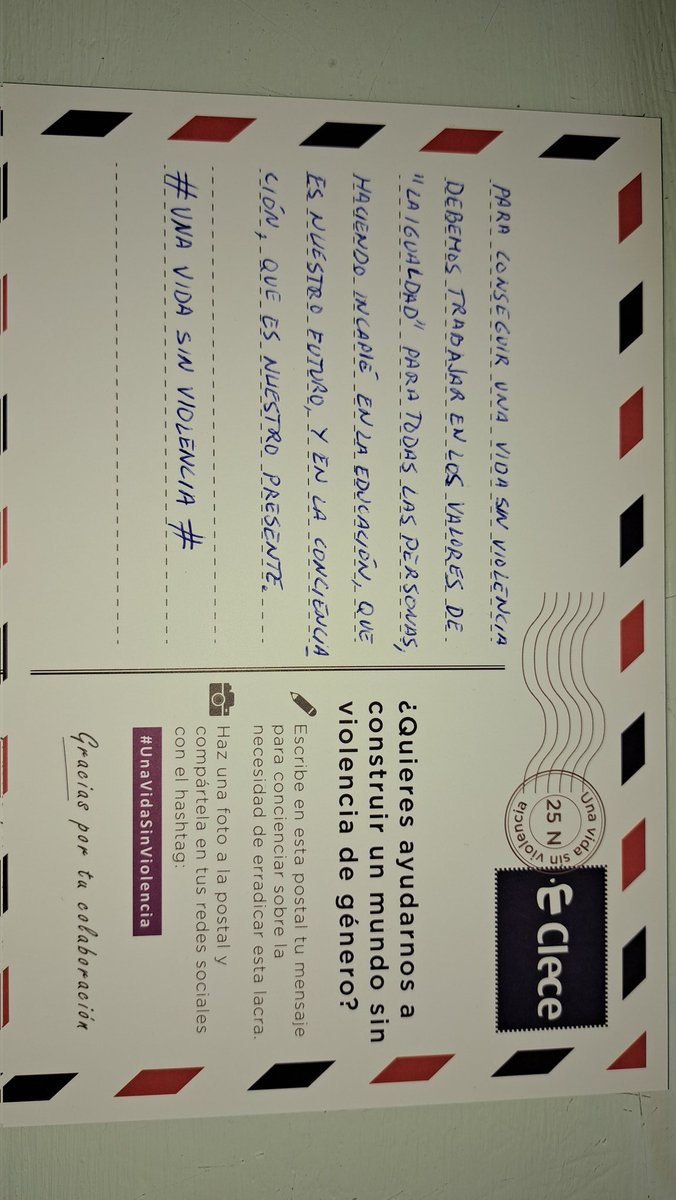 PARA CONSEGUIR UNA VIDA SIN VIOLENCIA
DEBEMOS TRABAJAR EN LOS VALORES DE
"LA IGUALDAD" PARA TODAS LAS PERSONAS,
HACIENDO INCAPIÉ EN LA EDUCACIÓN, QUE
ES NUESTRO FUTURO, Y EN LA CONCIENCIA
CIÓN, QUE ES NUESTRO PRESENTE.
# UNA VIDA SIN VIOLENCIA #
Una vida sin violencia
25 N
Clece
¿Quieres ayudarnos a
construir un mundo sin
violencia de género?
Escribe en esta postal tu mensaje
para concienciar sobre la
necesidad de erradicar esta lacra.
Haz una foto a la postal y
compártela en tus redes sociales
con el hashtag:
#UnaVidaSinViolencia
Gracias por tu colaboración